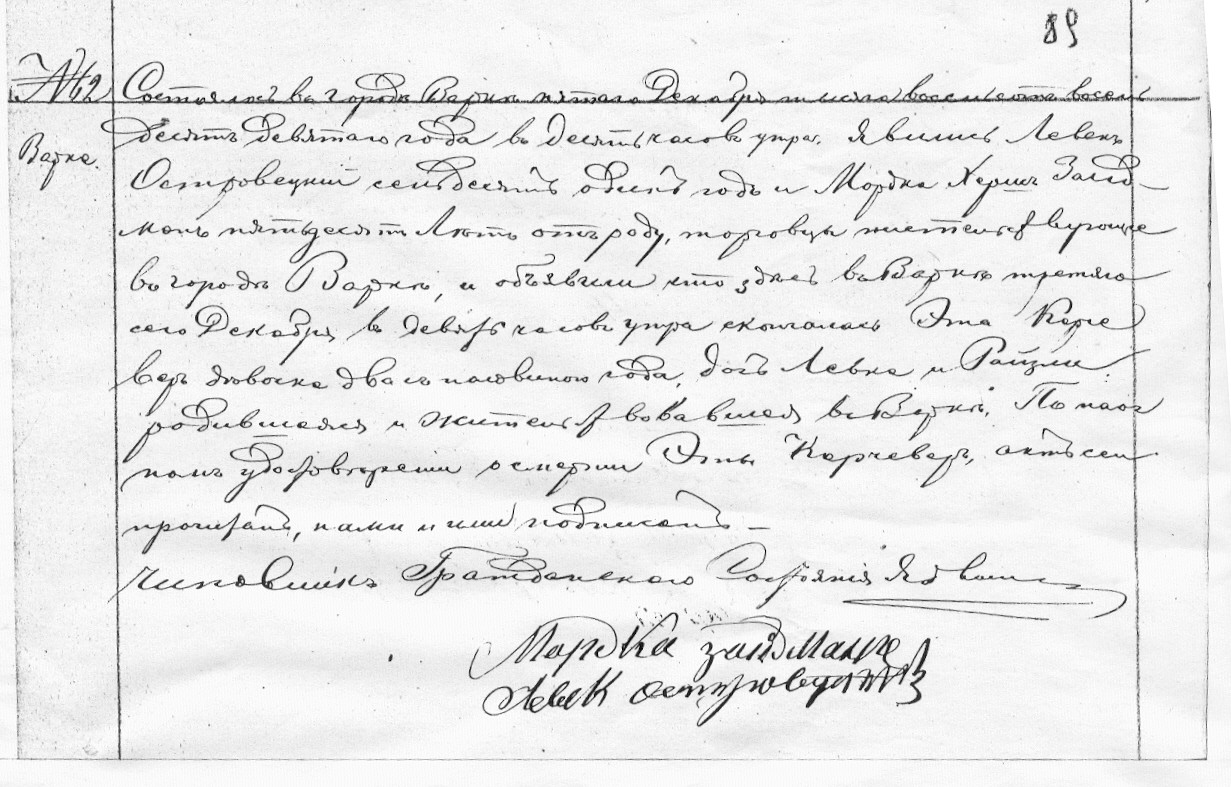 89
№ 62 Состоялось въ городѣ Варкѣ пятаго Декабря тысяча восемьсотъ восемь
Варка. десятъ девятаго года въ десять часовъ утра. Явились Левекъ
Островецкій семьдесятъ одинъ годъ и Мордка Хершъ Зайд-
манъ пятьдесятъ лѣтъ отъ роду, торговцы жительствующіе
въ городѣ Варкѣ, и объявили что здѣсь въ Варкѣ третяго
сего Декабря въ девять часовъ утра скончалась Эта Карче
веръ два съ половиною года, дочь Левка и Райзли.
родившаяся и жительствовавшая въ Варкѣ. По наоч
номъ удостовѣреніи о смерти Эты Карчеверъ, актъ сей
прочитанъ, нами и ими подписанъ —
Чиновникъ Гражданскаго Состоянія
Мордка Зайдманъ
Левек Островецкій